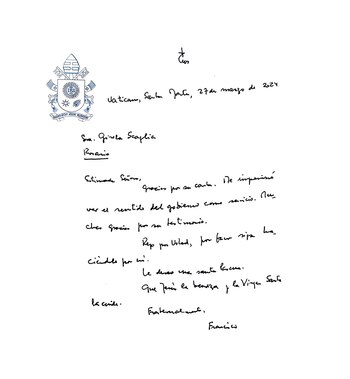 Vaticano, Santa Marta, 27 de marzo de 2024
Sra. Gisela Scaglia
Rosario
Estimada Señora,
Gracias por su carta. Me impresionó
ver el sentido del gobierno como servicio. Mu-
chas gracias por su testimonio.
Rezo por Usted, por favor siga ha-
ciéndolo por mí.
Le deseo una santa Pascua.
Que Jesús la bendiga y la Virgen Santa
la cuide.
Fraternalmente,
Francisco